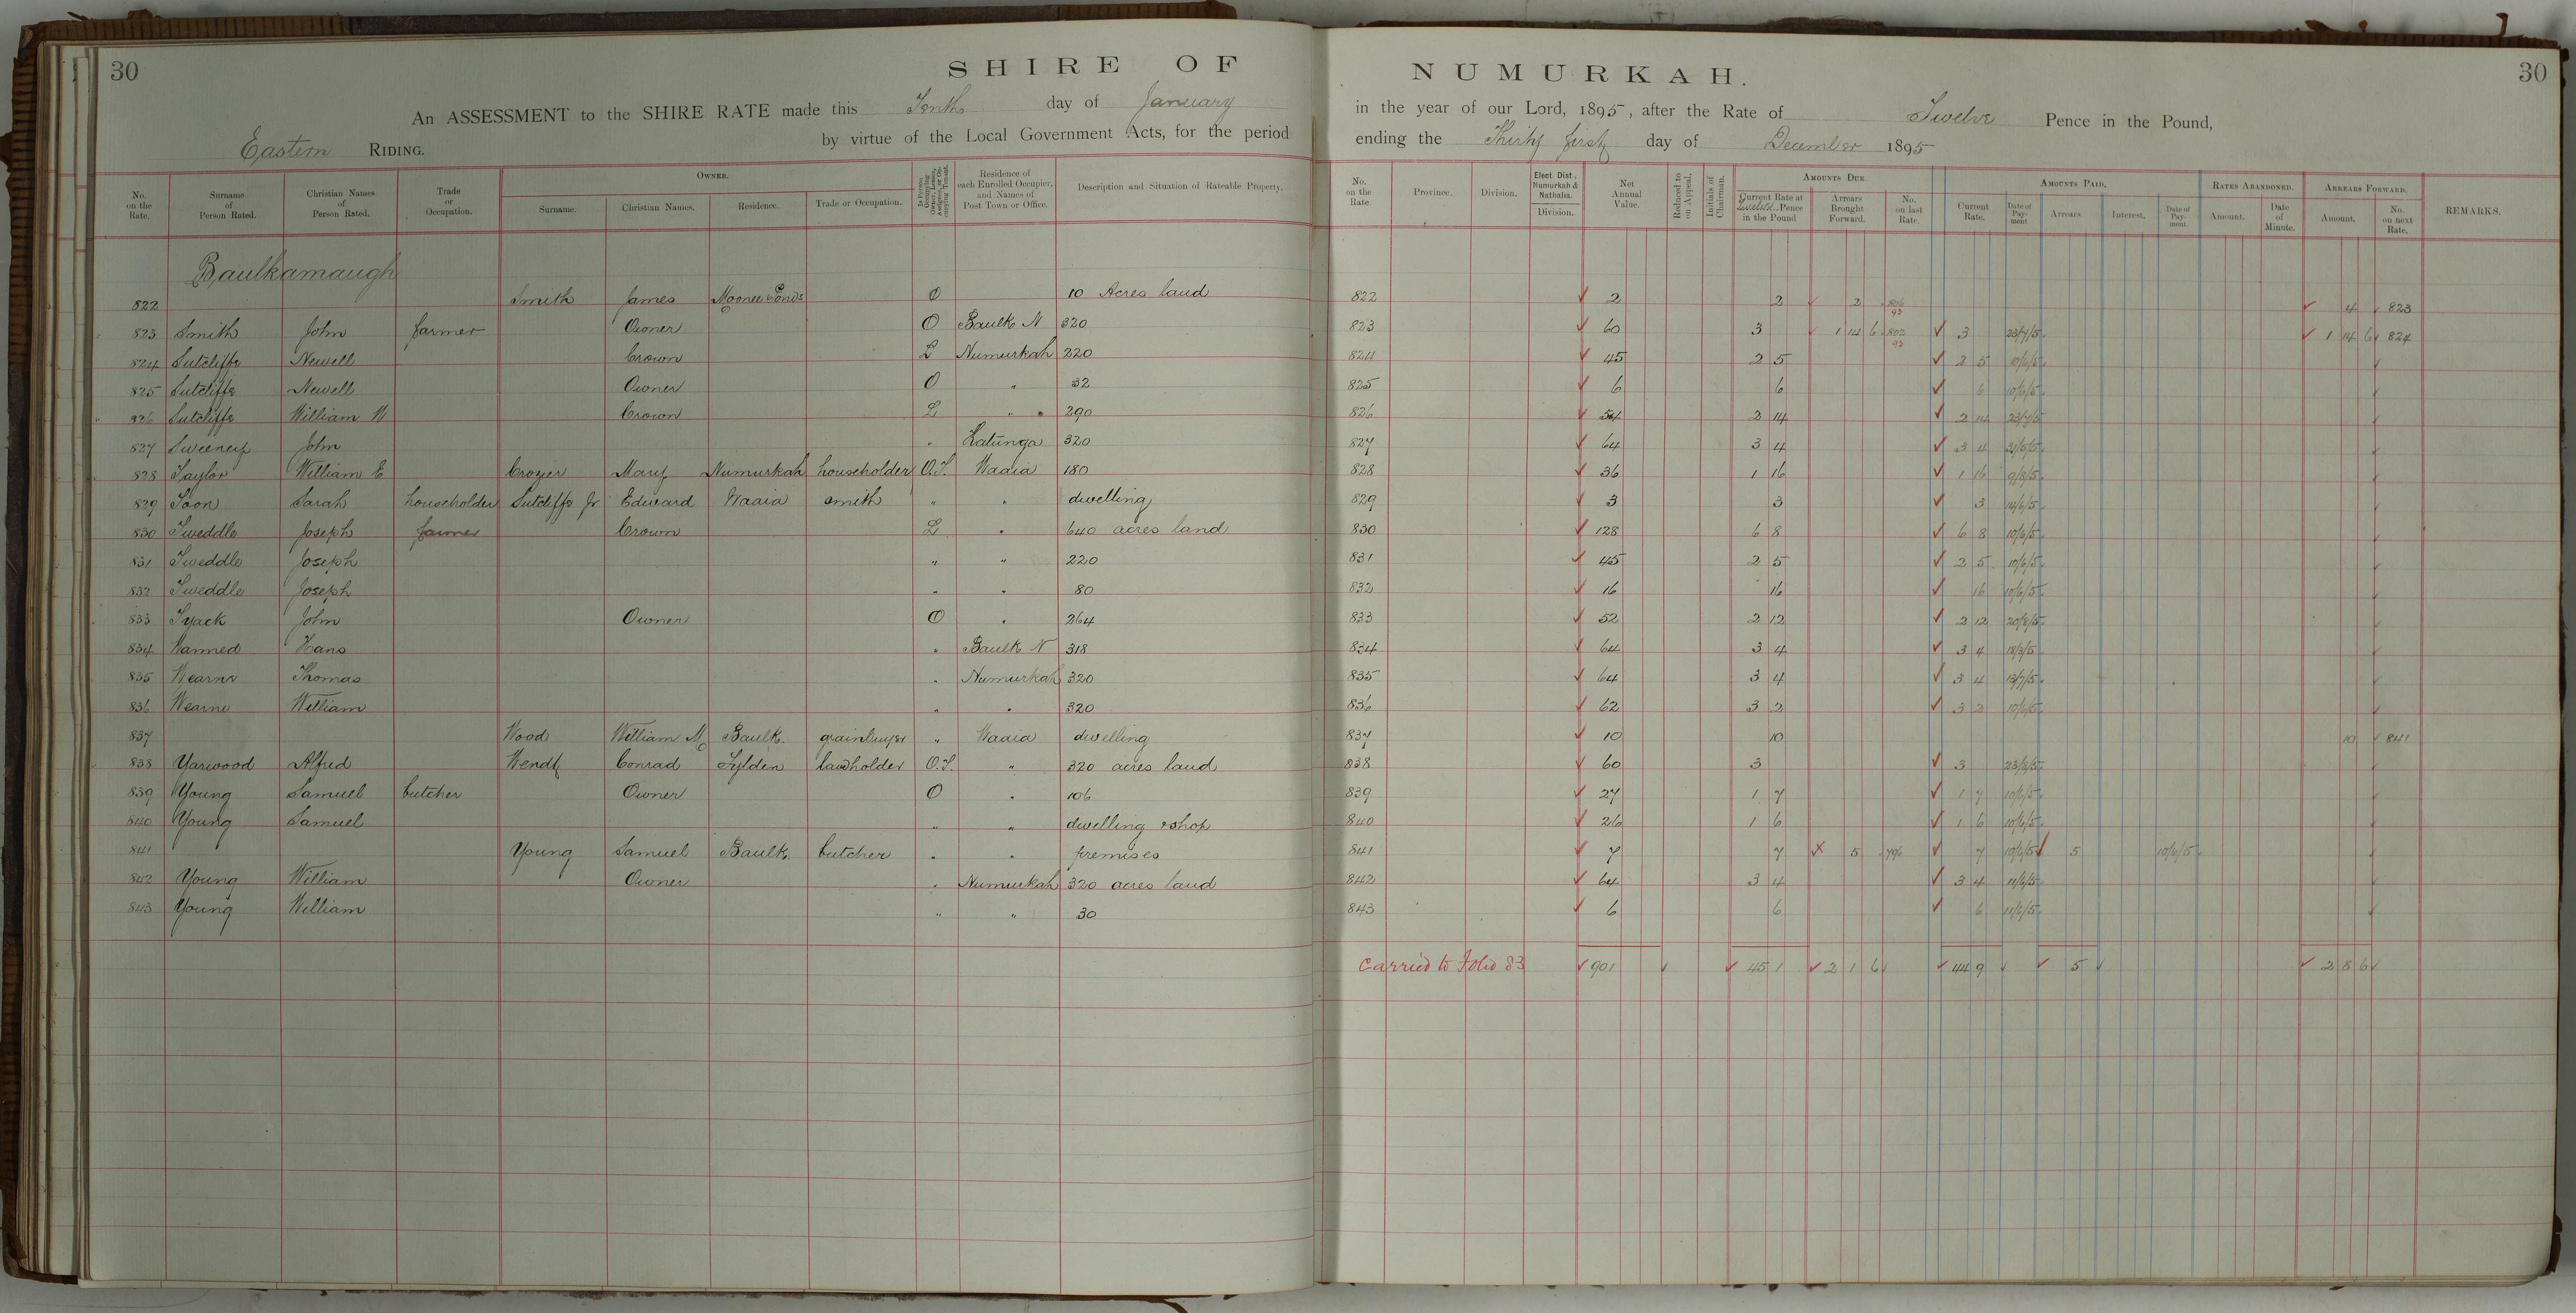 30 SHIRE OF NUMURKAH. 30
An ASSESSMENT to the SHIRE RATE made this Tenth day of January in the year of our Lord, 1895, after the Rate of Twelve Pence in the Pound,
Eastern RIDING. by virtue of the Local Government Acts, for the period ending the Thirty first day of December 1895
No. on the Rate. Surname of Person Rated. Christian Names of Person Rated. Trade or Occupation. OWNER. Surname. Christian Names. Residence. Trade or Occupation. Residence of each Enrolled Occupier, and Names of Post Town or Office. Description and Situation of Rateable Property. No. on the Rate. Province. Division. Elect. Dist. Numurkah & Nathalia. Division. Net Annual Value. Reduced to on Appeal. Initials of Chairman. AMOUNTS DUE. Current Rate at Twelve Pence in the Pound Arrears Brought Forward. No. on last Rate. AMOUNTS PAID. Current Rate. Date of Payment Arrears Interest. Date of Payment. RATES ABANDONED. Amount. Date of Minute. ARREARS FORWARD. Amount. No. on next Rate. REMARKS.
Baulkamaugh
822 Smith James Moonee Ponds O 10 Acres land 822 2 2 2 806 93 4 823
823 Smith John farmer Owner O Baulk N 320 823 60 3 1 14 6 802 93 3 23/7/5 1 14 6 824
824 Sutcliffe Newell Crown L Numurkah 220 824 45 2 5 2 5 10/6/5
825 Sutcliffe Newell Owner O " 32 825 6 6 6 10/6/5
826 Sutcliffe William N Crown L " 290 826 54 2 14 2 14 23/7/5
827 Sweeney John " Katunga 320 827 64 3 4 3 4
828 Taylor William E Crozier Mary Numurkah householder O.T. Waaia 180 828 36 1 16 1 16 9/8/5
829 Toon Sarah householder Sutcliffe Jr Edward Waaia smith " " dwelling 829 3 3 3 14/6/5
830 Tweddle Joseph farmer Crown L " 640 acres land 830 128 6 8 6 8 10/6/5
831 Tweddle Joseph " " 220 831 45 2 5 2 5 10/6/5
832 Tweddle Joseph " " 80 832 16 16 16 10/6/5
833 Tyack John Owner O " 264 833 52 2 12 2 12 20/8/5
834 Wanned Hans " Baulk N 318 834 64 3 4 3 4 18/3/5
835 Wearne Thomas " Numurkah 320 835 64 3 4 3 4 13/7/5
836 Wearne William " " 320 836 62 3 2 3 2 10/6/5
837 Wood William M Baulk. grainbuyer " Waaia dwelling 837 10 10 10 841
838 Yarwood Alfred Wendt Conrad Tylden landholder O.T. " 320 acres land 838 60 3 3 23/3/5
839 Young Samuel butcher Owner O " 106 839 27 1 7 1 7 10/6/5
840 Young Samuel " " dwelling & shop 840 26 1 6 1 6 10/6/5
841 Young Samuel Baulk. butcher " " premises 841 7 7 5 796 7 10/6/5 5 10/6/5
842 Young William Owner " Numurkah 320 acres land 842 64 3 4 3 4 11/6/5
843 Young William " " 30 843 6 6 6 11/6/5
Carried to Folio 83 901 45 1 2 1 6 44 9 5 2 8 6